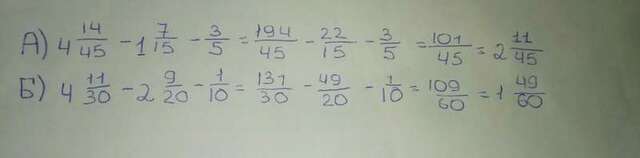 А) 4 14/45 - 1 7/15 - 3/5 = 194/45 - 22/15 - 3/5 = 101/45 = 2 11/45
Б) 4 11/30 - 2 9/20 - 1/10 = 131/30 - 49/20 - 1/10 = 109/60 = 1 49/60